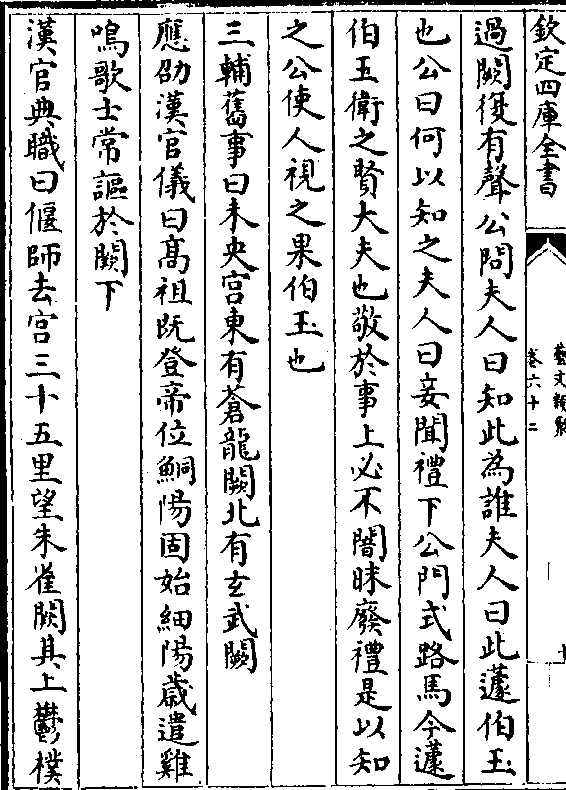 欽定四庫全書
藝文類聚
卷六十二
過闕復有聲公問夫人曰知此為誰夫人曰此蘧伯玉
也公曰何以知之夫人曰妾聞禮下公門式路馬今蘧
伯玉衛之賢大夫也敬於事上必不闇昧廢禮是以知
之公使人視之果伯玉也
三輔舊事曰未央宫東有蒼龍闕北有玄武闕
應劭漢官儀曰高祖既登帝位鮦陽固始細陽歳遣雞
鳴歌士常謳於闕下
漢官典職曰偃師去宫三十五里望朱雀闕其上鬱樸